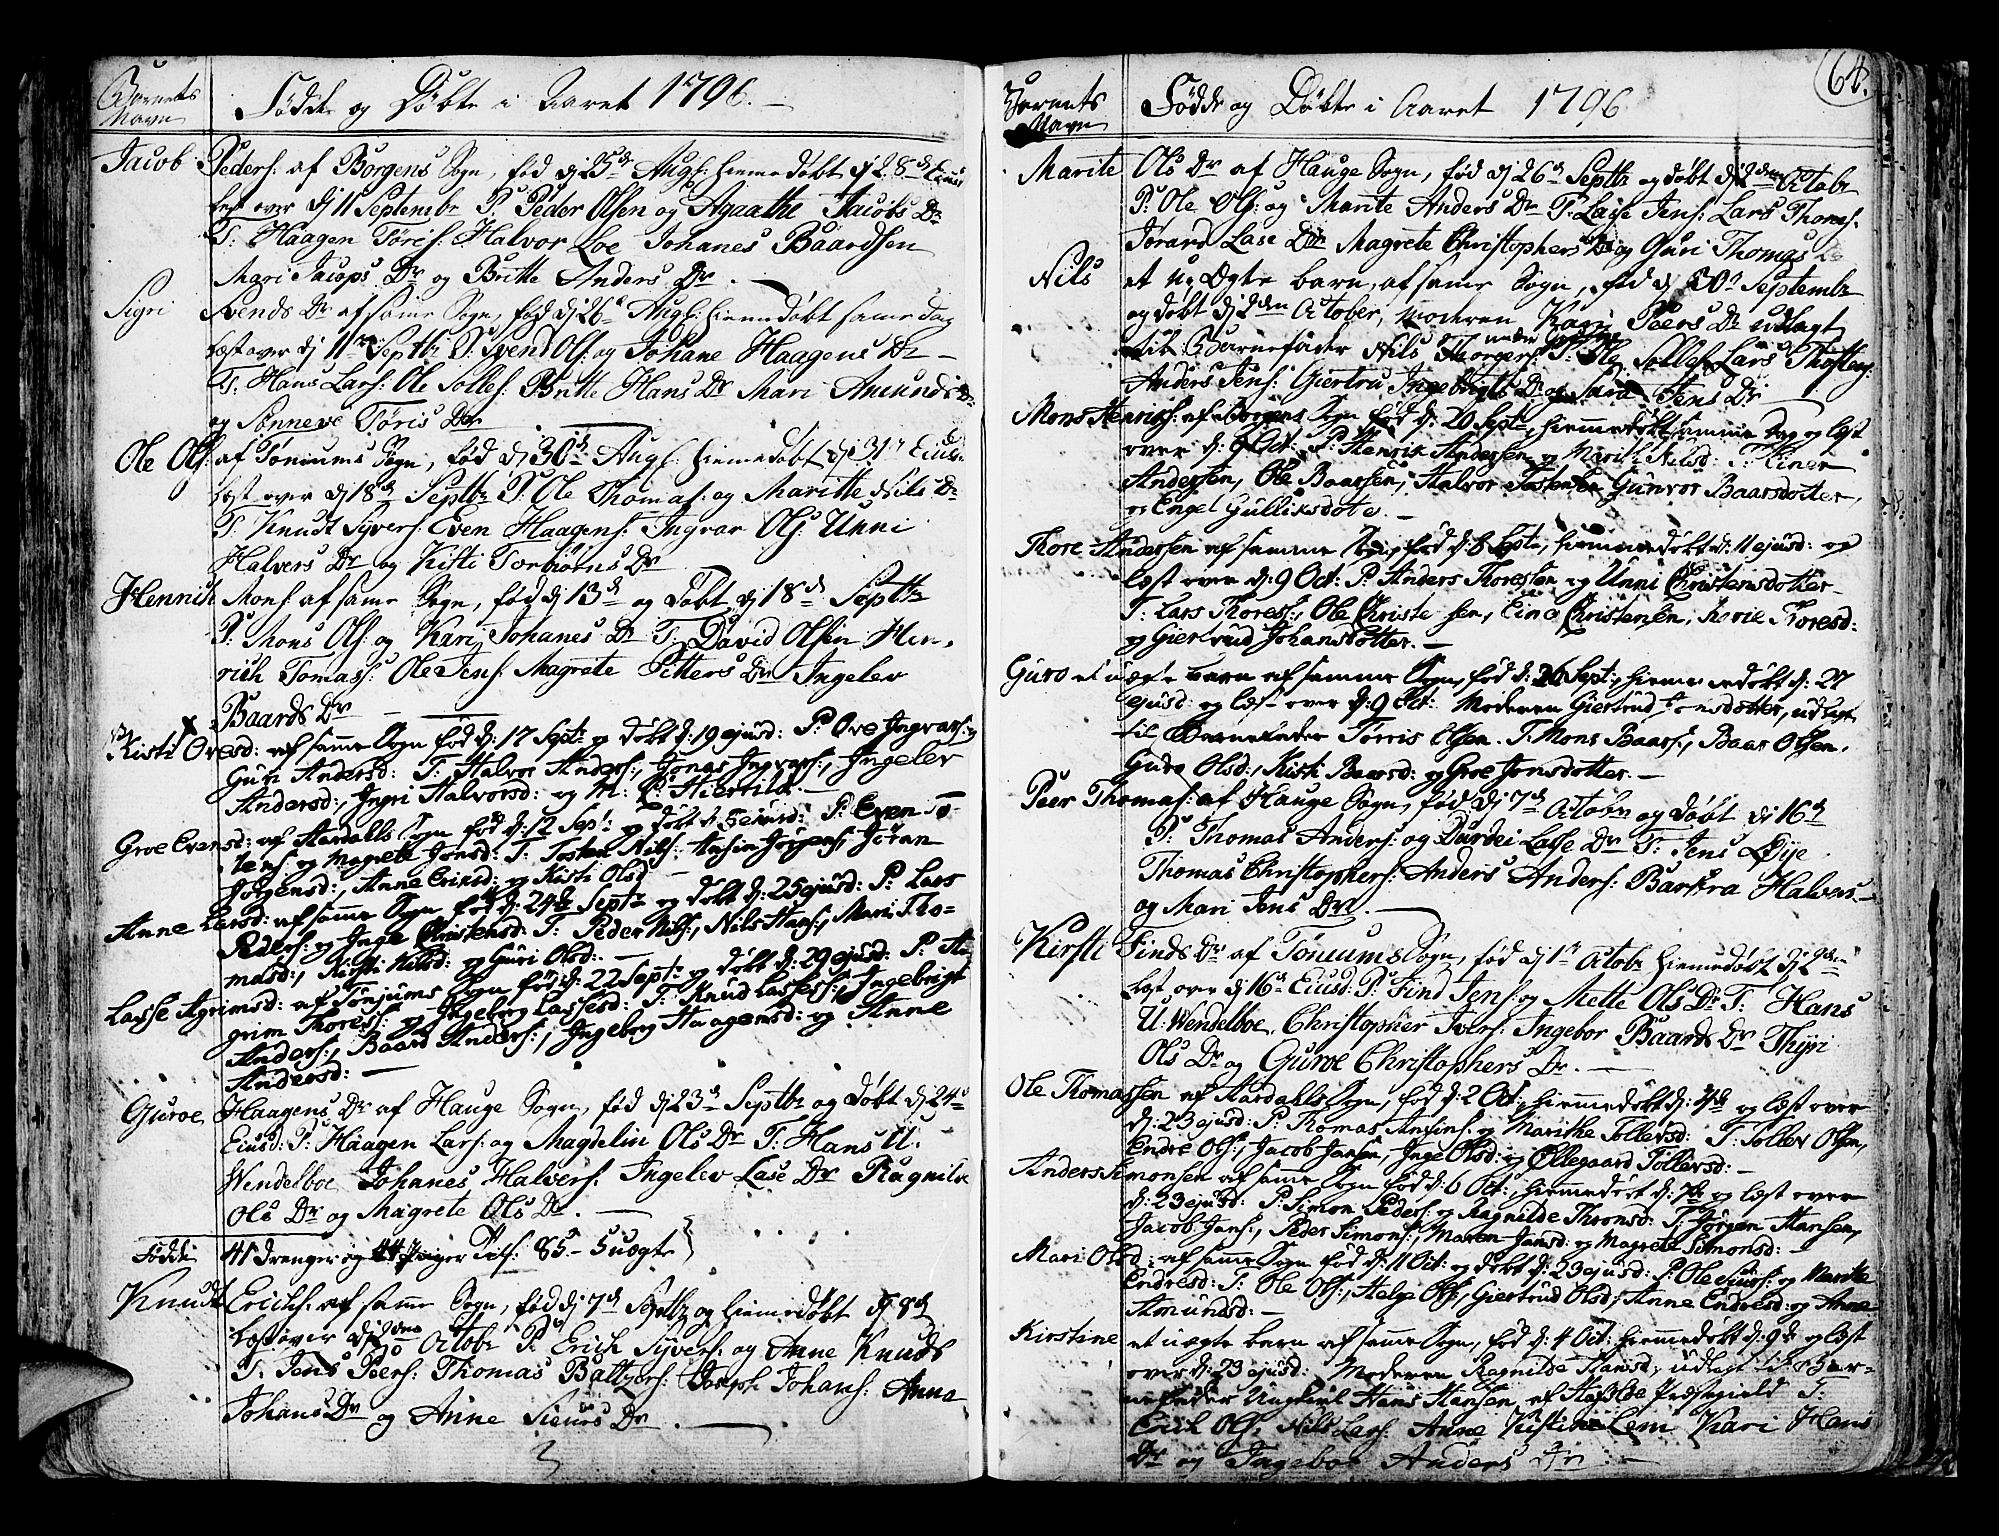 Barnets Navn
Fødde og Døbte i Aaret 1796.
Jacob Peders: af Borgens Sogn, fød dj 25d Augs: hiemedøbt dj 28d Eius
lest over dj 11 Septembr P. Peder Olsen og Agaathe Jacobs Dr
T: Haagen Töris: Halvor Loe Johanes Baardsen
Mari Jacops Dr og Britte Anders Dr. -
Sigri Svends Dr af same Sogn, fød dj 26d Augs: hiemedøbt same dag
læst over dj 11te Septbr P: Svend Ols: og Johane Haagens Dr -
T: Hans Lars: Ole Solles: Britte Hans Dr Mari Amunds Dr
og Sønneve Töris Dr
Ole Ols: af Tøniums Sogn, fød dj 30d Augs: hiemedøbt dj 31te Eius
læst over dj 18d Septbr P: Ole Thomas: og Maritte Nils Dr
T: Knudt Syvers: Even Haagens: Ingvar Ols: Unni
Halvers Dr og Kisti Torbiøns Dr
Henrich Mons: af same Sogn, fød dj 13d og Døbt dj 18d Septbr
P: Mons Ols: og Kari Johanes Dr T: David Olsen Hen-
rich Tomas: Ole Jens: Magrete Pitters Dr Ingelev
Baards Dr
Kisti Ovesd: af samme Sogn fød d: 17 Septr og døbt d: 19 ejusd: P: Ove Ingvars: og
Guri Andersd: T: Halvor Anders:, Jonas Ingvars:, Ingelev
Andersd:, Ingri Halvorsd: og M: S: Hiertild. -
Groe Evensd: af Aardahls Sogn fød d: 12 Septr og døbt d: ejusd: P: Even To-
stens: og Magrete Jonsd: T: Tosten Nils: Ansin Jørgens, Jøran
Jørgensd:, Anne Eriksd: og Kisti Olsd
Anne Larsd: af samme Sogn fød d: 24de Septr og døbt d: 25 ejusd: P: Lars
Peders: og Inge Christensd: T: Peder Nils:, Nils Haas:, Mari Tho-
masd:, Kirsti Nilsd: og Guri Olsd: -
Lasse Agrimsd: af Tønjums Sogn fød d: 22 Septr og døbt d: 29 ejusd: P: A-
grim Thores: og Ingeborg Lassesd: T: Knud Lasses:, Ingebrigt
Anders:, Baard Anders:, Ingeborg Haagensd: og Anne
Andersd: -
Guroe Haagens Dr af Hauge Sogn, fød dj 23d Septbr og Døbt dj 24d
Eiusd: P: Haagen Lars: og Magdelin Ols Dr T: Hans U.
Wendelboe Johanes Halvers: Ingelev Lase Dr Ragnilde
Ols Dr og Magrete Ols Dr. -
Fødde 41 Drenger og 44 Piger Tils: 85 - 5 uægte
Knudt Ericks: af same Sogn, fød dj 7d Septbr og hiemedøbt dj 8d
læst over dj 2den Octobr P: Erich Syvers: og Anne Knuds Dr
T: Jens Peers: Thomas Baltzers: Joseph Johans: Anna
Johans Dr og Anne Siurs Dr. -
64.
Barnets Navn
Fødde og Døbte i Aaret 1796
Marite Ols Dr af Hauge Sogn, fød dj 26d Septbr og døbt dj 2den Octobr
P: Ole Ols: og Marite Anders Dr T: Lasse Jens: Lars Thomes:
Jørand Lase Dr Magrete Christophers Dr og Guri Thomas Dr
Nils et u-Øgte barn, af same Sogn, fød dj 30d Septembr
og døbt dj 2den October, moderen Kari Peers Dr udlagt
til Barnefader Nils Thorgers: T: Ole Solles: Lars Thosten:
Anders Jens: Giertru Ingebrigts Dr og Sara Jens Dr
Mons Henrichs: af Borgens Sogn fød d: 20 Septr, hiemmedøbt samme Dag og læst
over d: 9 Oct: P: Henrik Andersen og Marith Nilsd: T: Einer
Andersen, Ole Baarsen, Halvor Tostensen Gunvor Baarsdotter,
og Engel Gulliksdoter. -
Thore Andersen af samme Sogn, fød d: 8 Septr, hiemmedøbt d: 11 ejusd: og
læst over d: 9 Oct: P: Anders Thoresten og Unni Christensdotter
T: Lars Thoress:, Ole Christensen, Einer Christensen, Marie Thoresd:
og Giertrud Johansdotter. -
Guro et uægte barn af samme Sogn, fød d: 26 Sept:, hiemmedøbt d: 27
ejusd og læst over d: 9 Oct: Moderen Giertrud Jonsdotter, udlagt
til Barnefader Torris Olsen. T: Mons Baars:, Baar Olsen,
Guro Olsd:, Kisti Baarsd: og Groe Jonsdotter. -
Peer Thomas: af Hauge Sogn, fød dj 7d Octobr og Døbt dj 16d
P: Thomas Anders: og Durdei Lasse Dr T: Jens Øye
Thomas Christophers: Anders Anders: Barbra Halvers. -
og Mari Jens Dr. -
Kirsti Finds Dr af Tøniums Sogn, fød dj 1te Octobr hiemedøbt dj 2den
læst over dj 16d Eiusd: P: Find Jens: og Mette Ols Dr T: Hans
U: Wendelboe, Christopher Ivers: Ingebor Baards Dr Thyri
Ols Dr og Guroe Christophers Dr. -
Ole Thomassen af Aardahls Sogn, fød d: 2 Oct:, hiemmedøbt d: 4de og læst over
d: 23 ejusd: P: Thomas Ansins: og Marithe Tollevsd: T: Tollev Olsen,
Endre Ols:, Jacob Jansen, Inge Olsd: og Øllegaard Tollevsd: -
Anders Simonsen af samme Sogn fød d: 6 Oct:, hiemmedøbt d: 7de og læst over
d: 23 ejusd: P: Simon Peders: og Ragnilde Thronsd: T: Jørgen Hansen,
Jacob Jans:, Peder Simons:, Maren Jansd: og Magrete Simonsd: -
Mari Olsd: af samme Sogn fød d: 11 Oct: og døbt d: 23 ejusd: P: Ole Siurs: og Marithe
Endresd: T: Ole Ols:, Helge Ols:, Giertrud Olsd:, Anne Endresd: og Anne
Amundsd: -
Kirstine et uægte barn af samme Sogn, fød d: 4 Oct: hiemmedøbt d: 9de og læst
over d: 23 ejusd: Moderen Ragnilde Hansd:, udlagt til Bar-
nefader Ungkarl Hans Hansen af Hafslde Præstegield T:
Erick Ols:, Nils Lars: Anne Kistine Lem Kari Hans
Dr og Ingebor Anders Dr: -